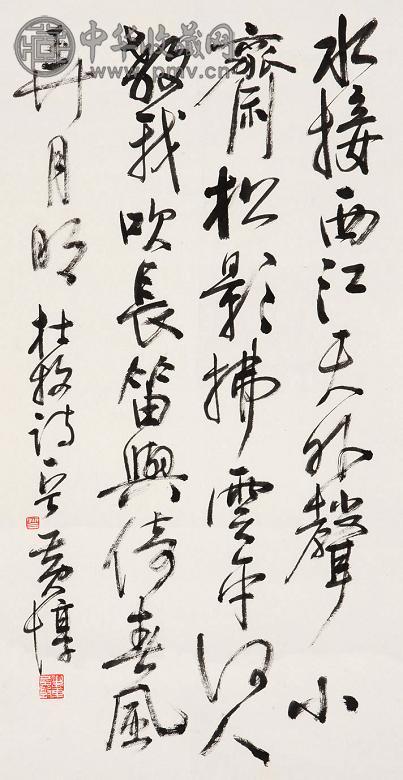 中华收藏网
www.pmv.cn
水接西江天外聲小
齋松影拂雲平何人
教我吹長笛與倚春風
弄月明 杜牧詩 黄惇